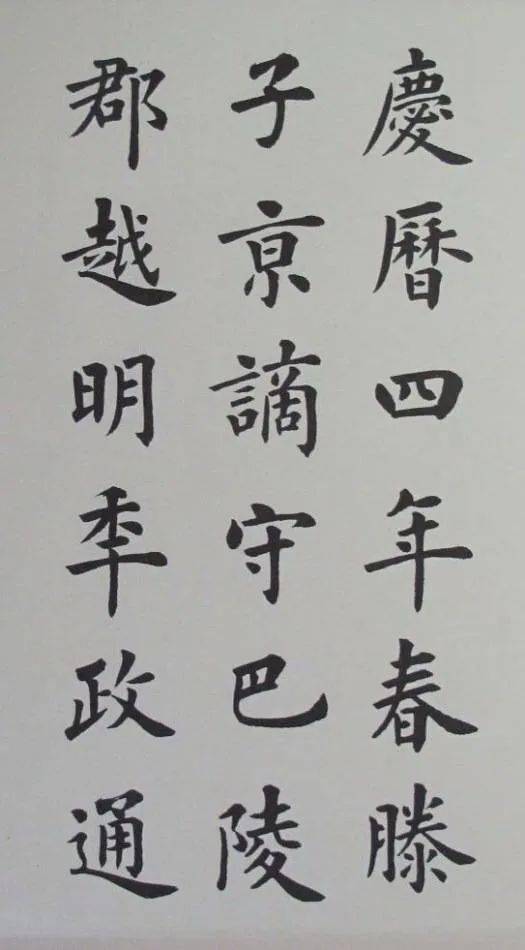 慶曆四年春滕
子京謫守巴陵
郡越明秊政通